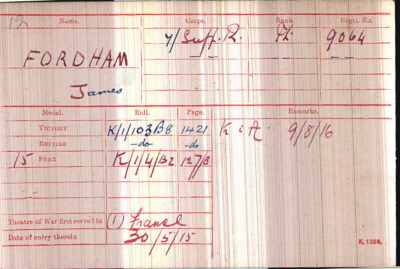 Name. Corps. Rank. Regtl. No.
FORDHAM 7/Suff. R. Pte 9064
James
Medal. Roll. Page. Remarks.
VICTORY K/1/103B8 1421 K i A. 9/8/16
BRITISH -do- -do-
15 STAR K/1/4/B2 127/B
Theatre of War first served in (1) France
Date of entry therein 30/5/15
K. 1380.